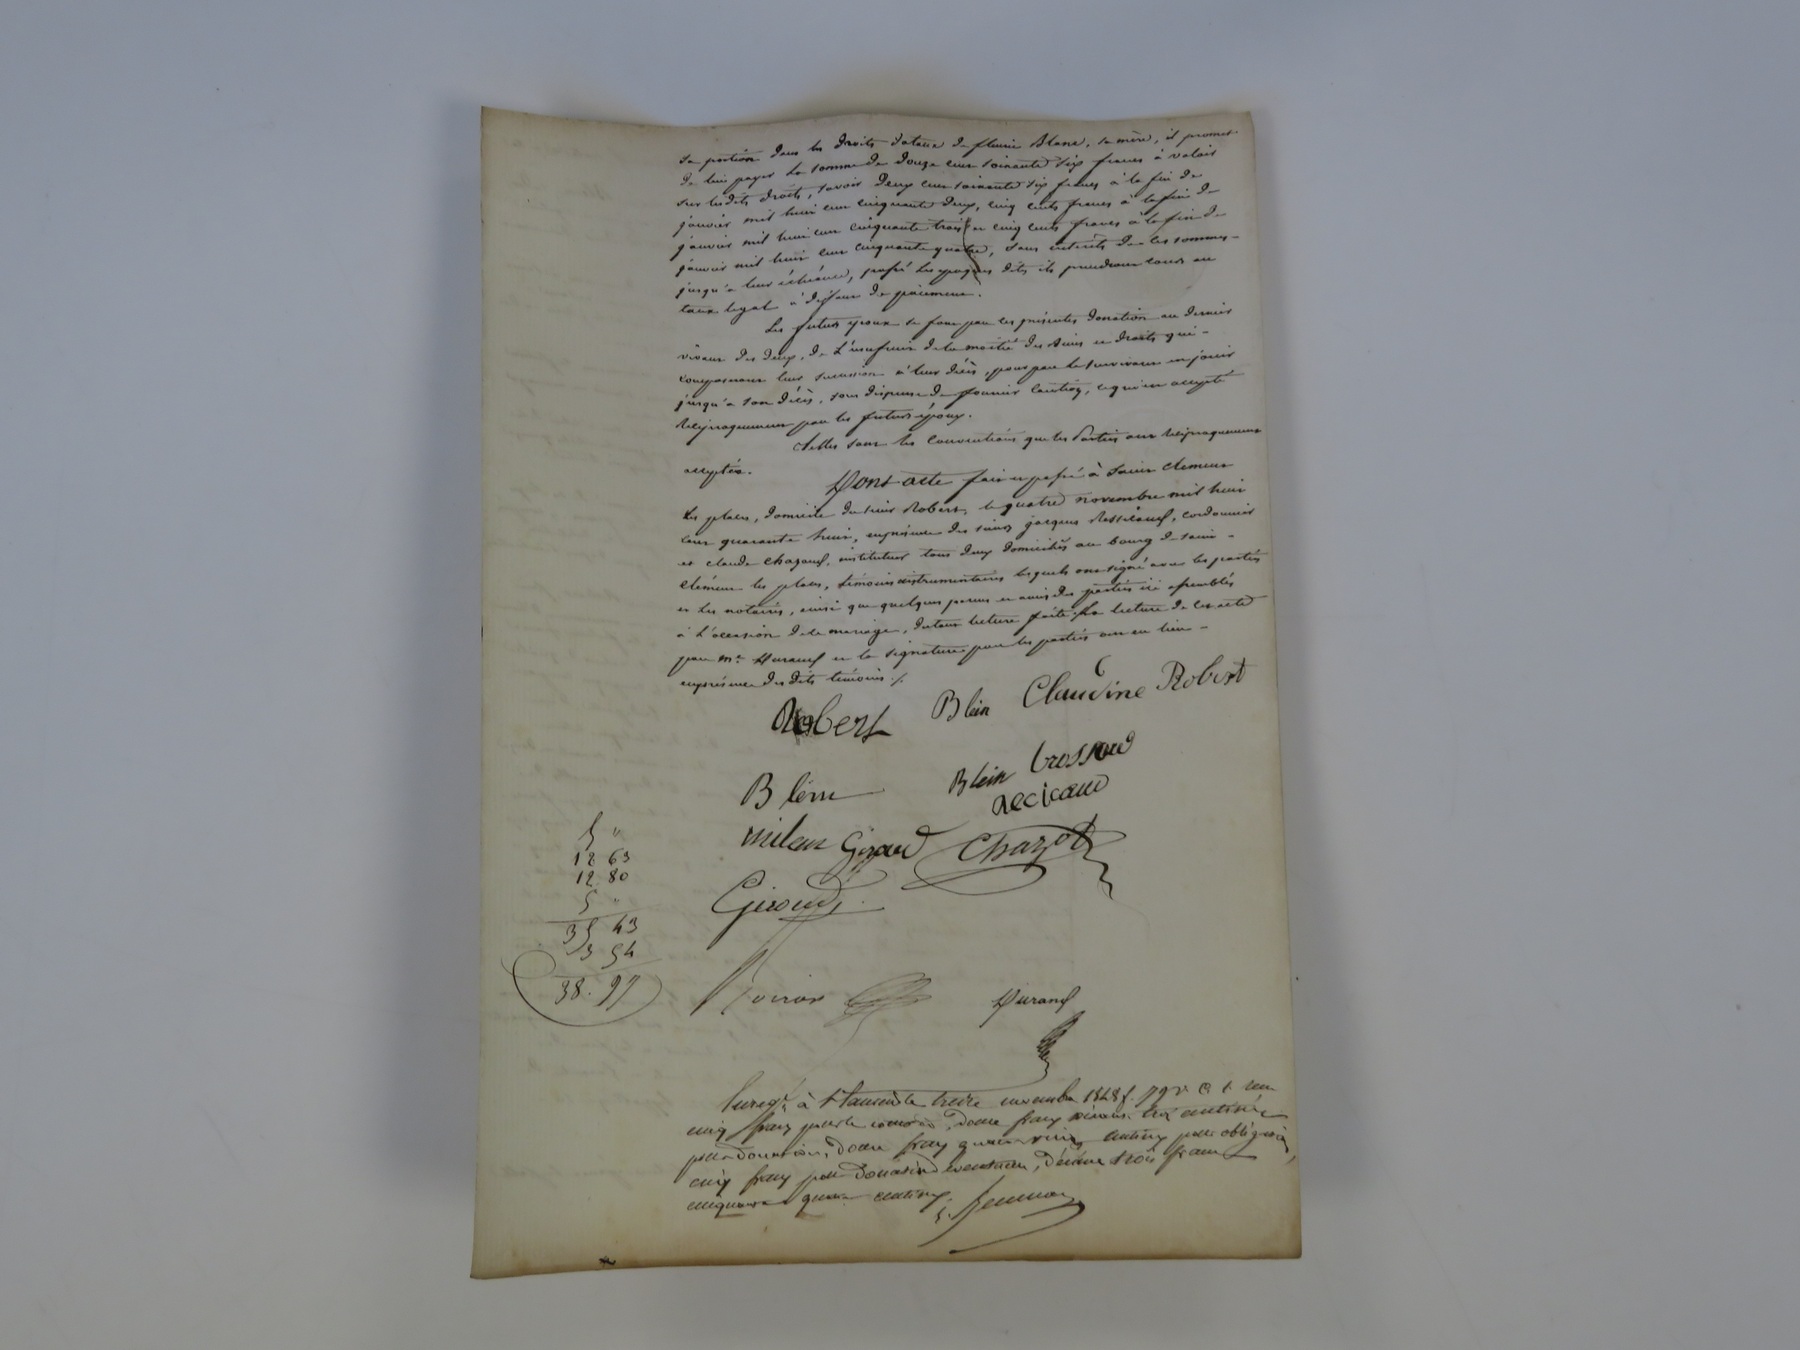 sa portion dans les droits dotaux de fleurie Blanc, sa mère, il promet
de leur payer la somme de douze cent soixante six francs à valoir
sur lesdits droits, savoir deux cent soixante six francs à la fin de
janvier mil huit cent cinquante deux, cinq cents francs à la fin de
janvier mil huit cent cinquante trois et cinq cents francs à la fin de
janvier mil huit cent cinquante quatre, sans intérêts de ces sommes
jusqu'à leur échéance, passé les époques dites ils prendront cours au
taux légal à défaut de paiement.
Les futurs époux se font par ces présentes donation au dernier
vivant des deux, de l'usufruit de la moitié des biens et droits qui
composeront leur succession à leur décès, pour par le survivant en jouir
jusqu'à son décès, sans dispense de fournir caution, ce qui est accepté
réciproquement par les futurs époux.
Telles sont les conventions que les Parties ont réciproquement
acceptées.
Dont acte fait et passé à Saint Clement
les places, domicile du sieur Robert, le quatre novembre mil huit
cent quarante huit, en présence des sieurs jacques, cordonnier
et claude, instituteur tous deux domiciliés au bourg de saint
Clément les places, témoins instrumentaires lesquels ont signé avec les parties
et les notaires, ainsi que quelques parens et amis des parties ici assemblés
à l'occasion de le mariage, du tout lecture faite. La lecture de cet acte
par Me Durand et la signature par les parties ont eu lieu
en présence des dits témoins ./.
Robert Blein Claudine Robert
Blein Blein Crossou
milan Giraud Chazot
5 "
12 63
12 80
5 "
35 43
3 54
38. 97
Giroud
Durand
Enregé à St Laurent le treize novembre 1848 f. 79 v° C 1. reçu
cinq francs pour le, douze francs soixante trois centimes
pour donation, douze francs quatre vingt centimes pour obligation,
cinq francs pour donation éventuelle, décime trois francs
cinquante quatre centimes.